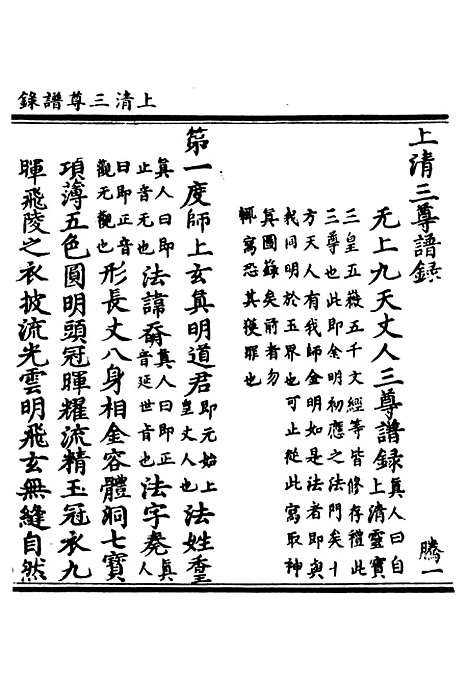 上清三尊譜錄
上清三尊譜錄
騰一
无上九天丈人三尊譜錄真人曰自上清靈寶
三皇五嶽五千文經等皆修存禮此
三尊也此即金明初應之法門矣十
方天人有我師金明如是法者即與
我同明於玉界也可止從此寫取神
真圖錄矣前者勿
輒寫恐其獲罪也
第一度師上玄真明道君即元始上皇丈人也法姓
真人曰即止音无也法諱真人曰即正音延世音也法字堯真人
曰即正音觀元觀也形長丈八身相金容體洞七寶
項薄五色圓明頭冠暉耀流精玉冠衣九
暉飛陵之衣披流光雲明飛玄無縫自然